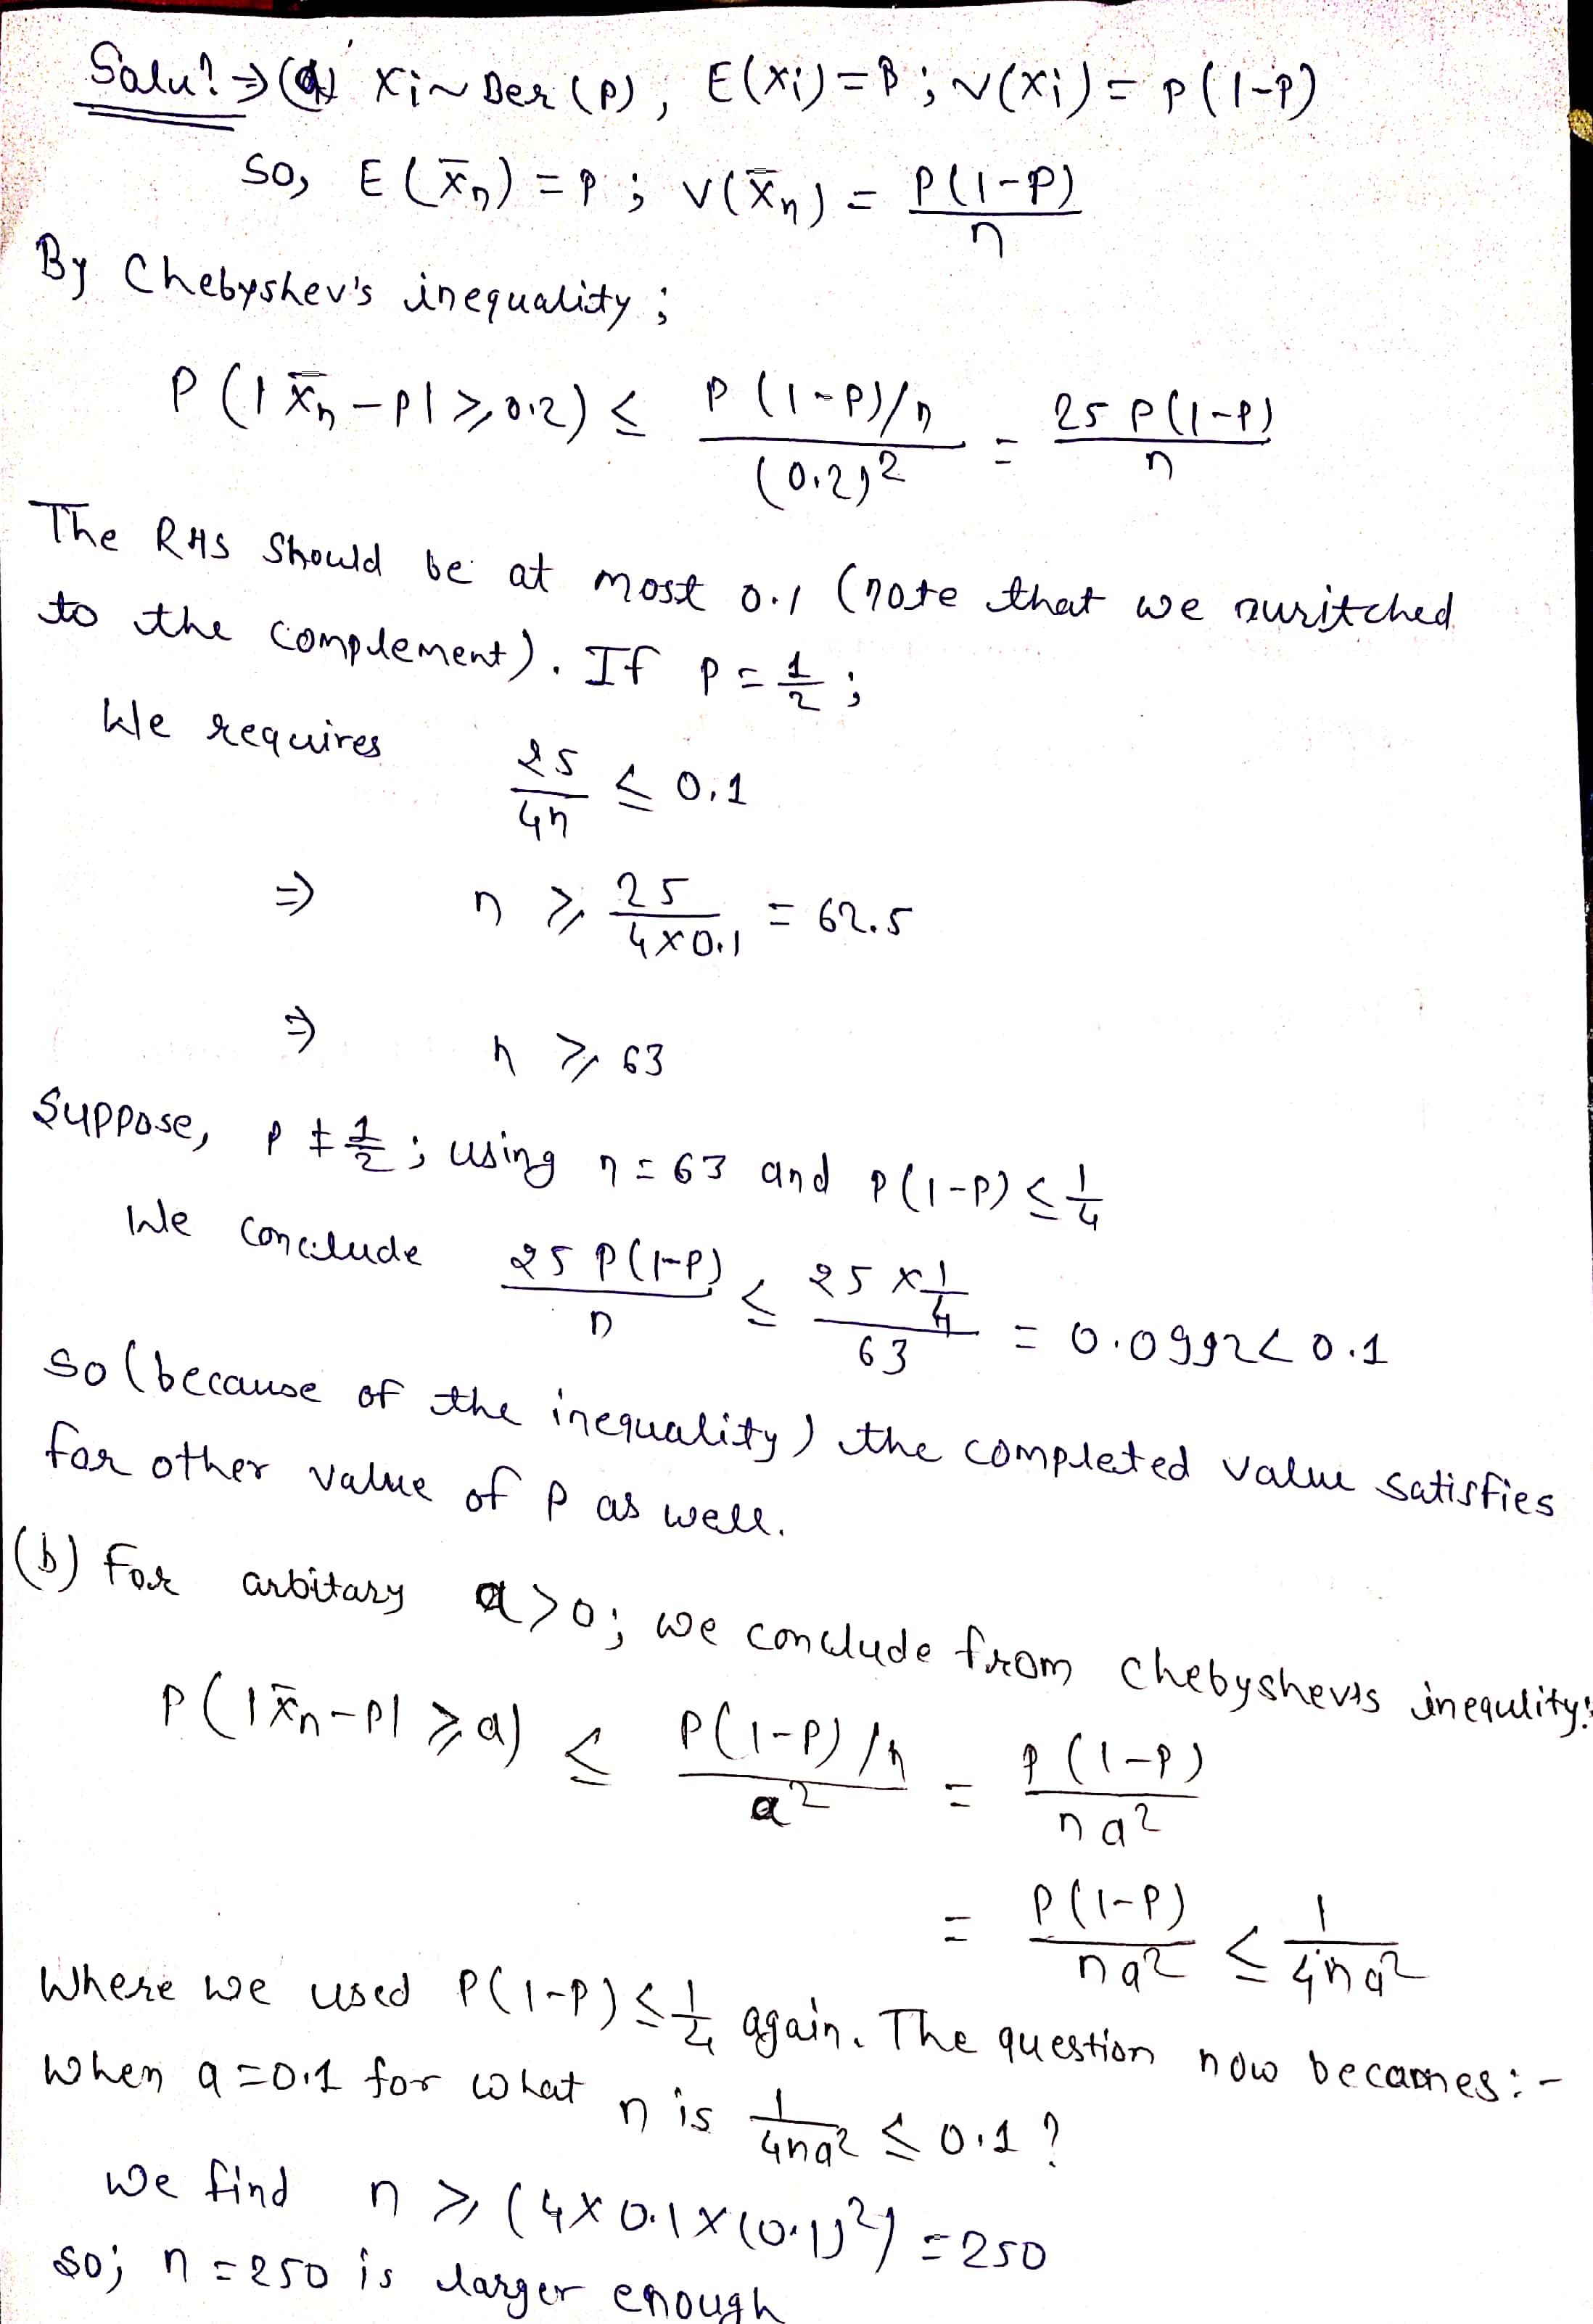 Solu? ⇒ (a) Xi ~ Ber (P), E(Xi) = P ; V(Xi) = P(1-P)
So, E(X̄n) = P ; V(X̄n) = P(1-P)/n
By Chebyshev's inequality ;
P(|X̄n - P| ≥ 0.2) ≤ (P(1-P)/n)/(0.2)² = 25 P(1-P)/n
The RHS Should be at most 0.1 (note that we switched
to the complement). If P = 1/2 ;
We requires 25/4n ≤ 0.1
⇒ n ≥ 25/(4×0.1) = 62.5
⇒ n ≥ 63
Suppose, P ≠ 1/2 ; using n = 63 and P(1-P) ≤ 1/4
We conclude 25 P(1-P)/n ≤ (25 × 1/4)/63 = 0.0992 < 0.1
So (because of the inequality) the completed value satisfies
for other value of P as well.
(b) For arbitary a > 0; we conclude from Chebyshevs inequlity:
P(|X̄n - P| ≥ a) ≤ (P(1-P)/n)/a² = P(1-P)/na²
= P(1-P)/na² ≤ 1/4na²
Where we used P(1-P) ≤ 1/4 again. The question now becomes :-
When a = 0.1 for what n is 1/4na² ≤ 0.1 ?
We find n ≥ (4 × 0.1 × (0.1)²) = 250
So; n = 250 is larger enough